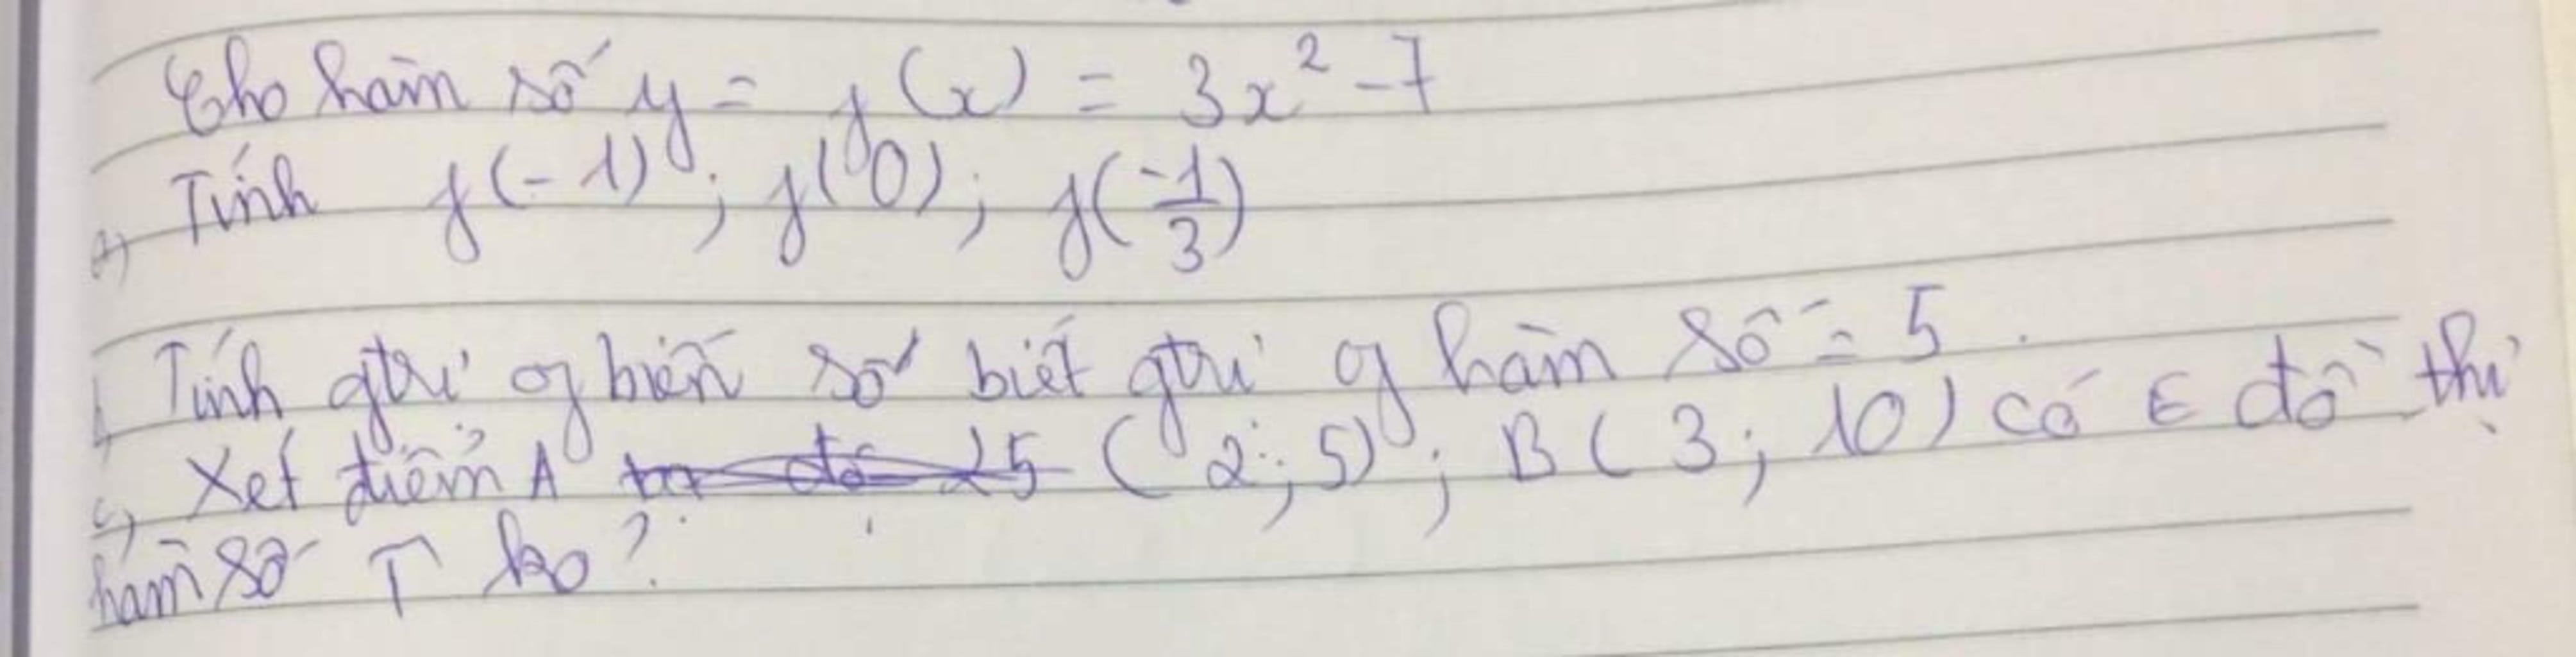 Cho hàm số y = f(x) = 3x² - 7
a) Tính f(-1); f(0); f(-1/3)
b) Tính gtrị of biến số biết gtrị of hàm số = 5.
c) Xét điểm A (2; 5); B (3; 10) có ∈ đồ thị
hàm số T ko?